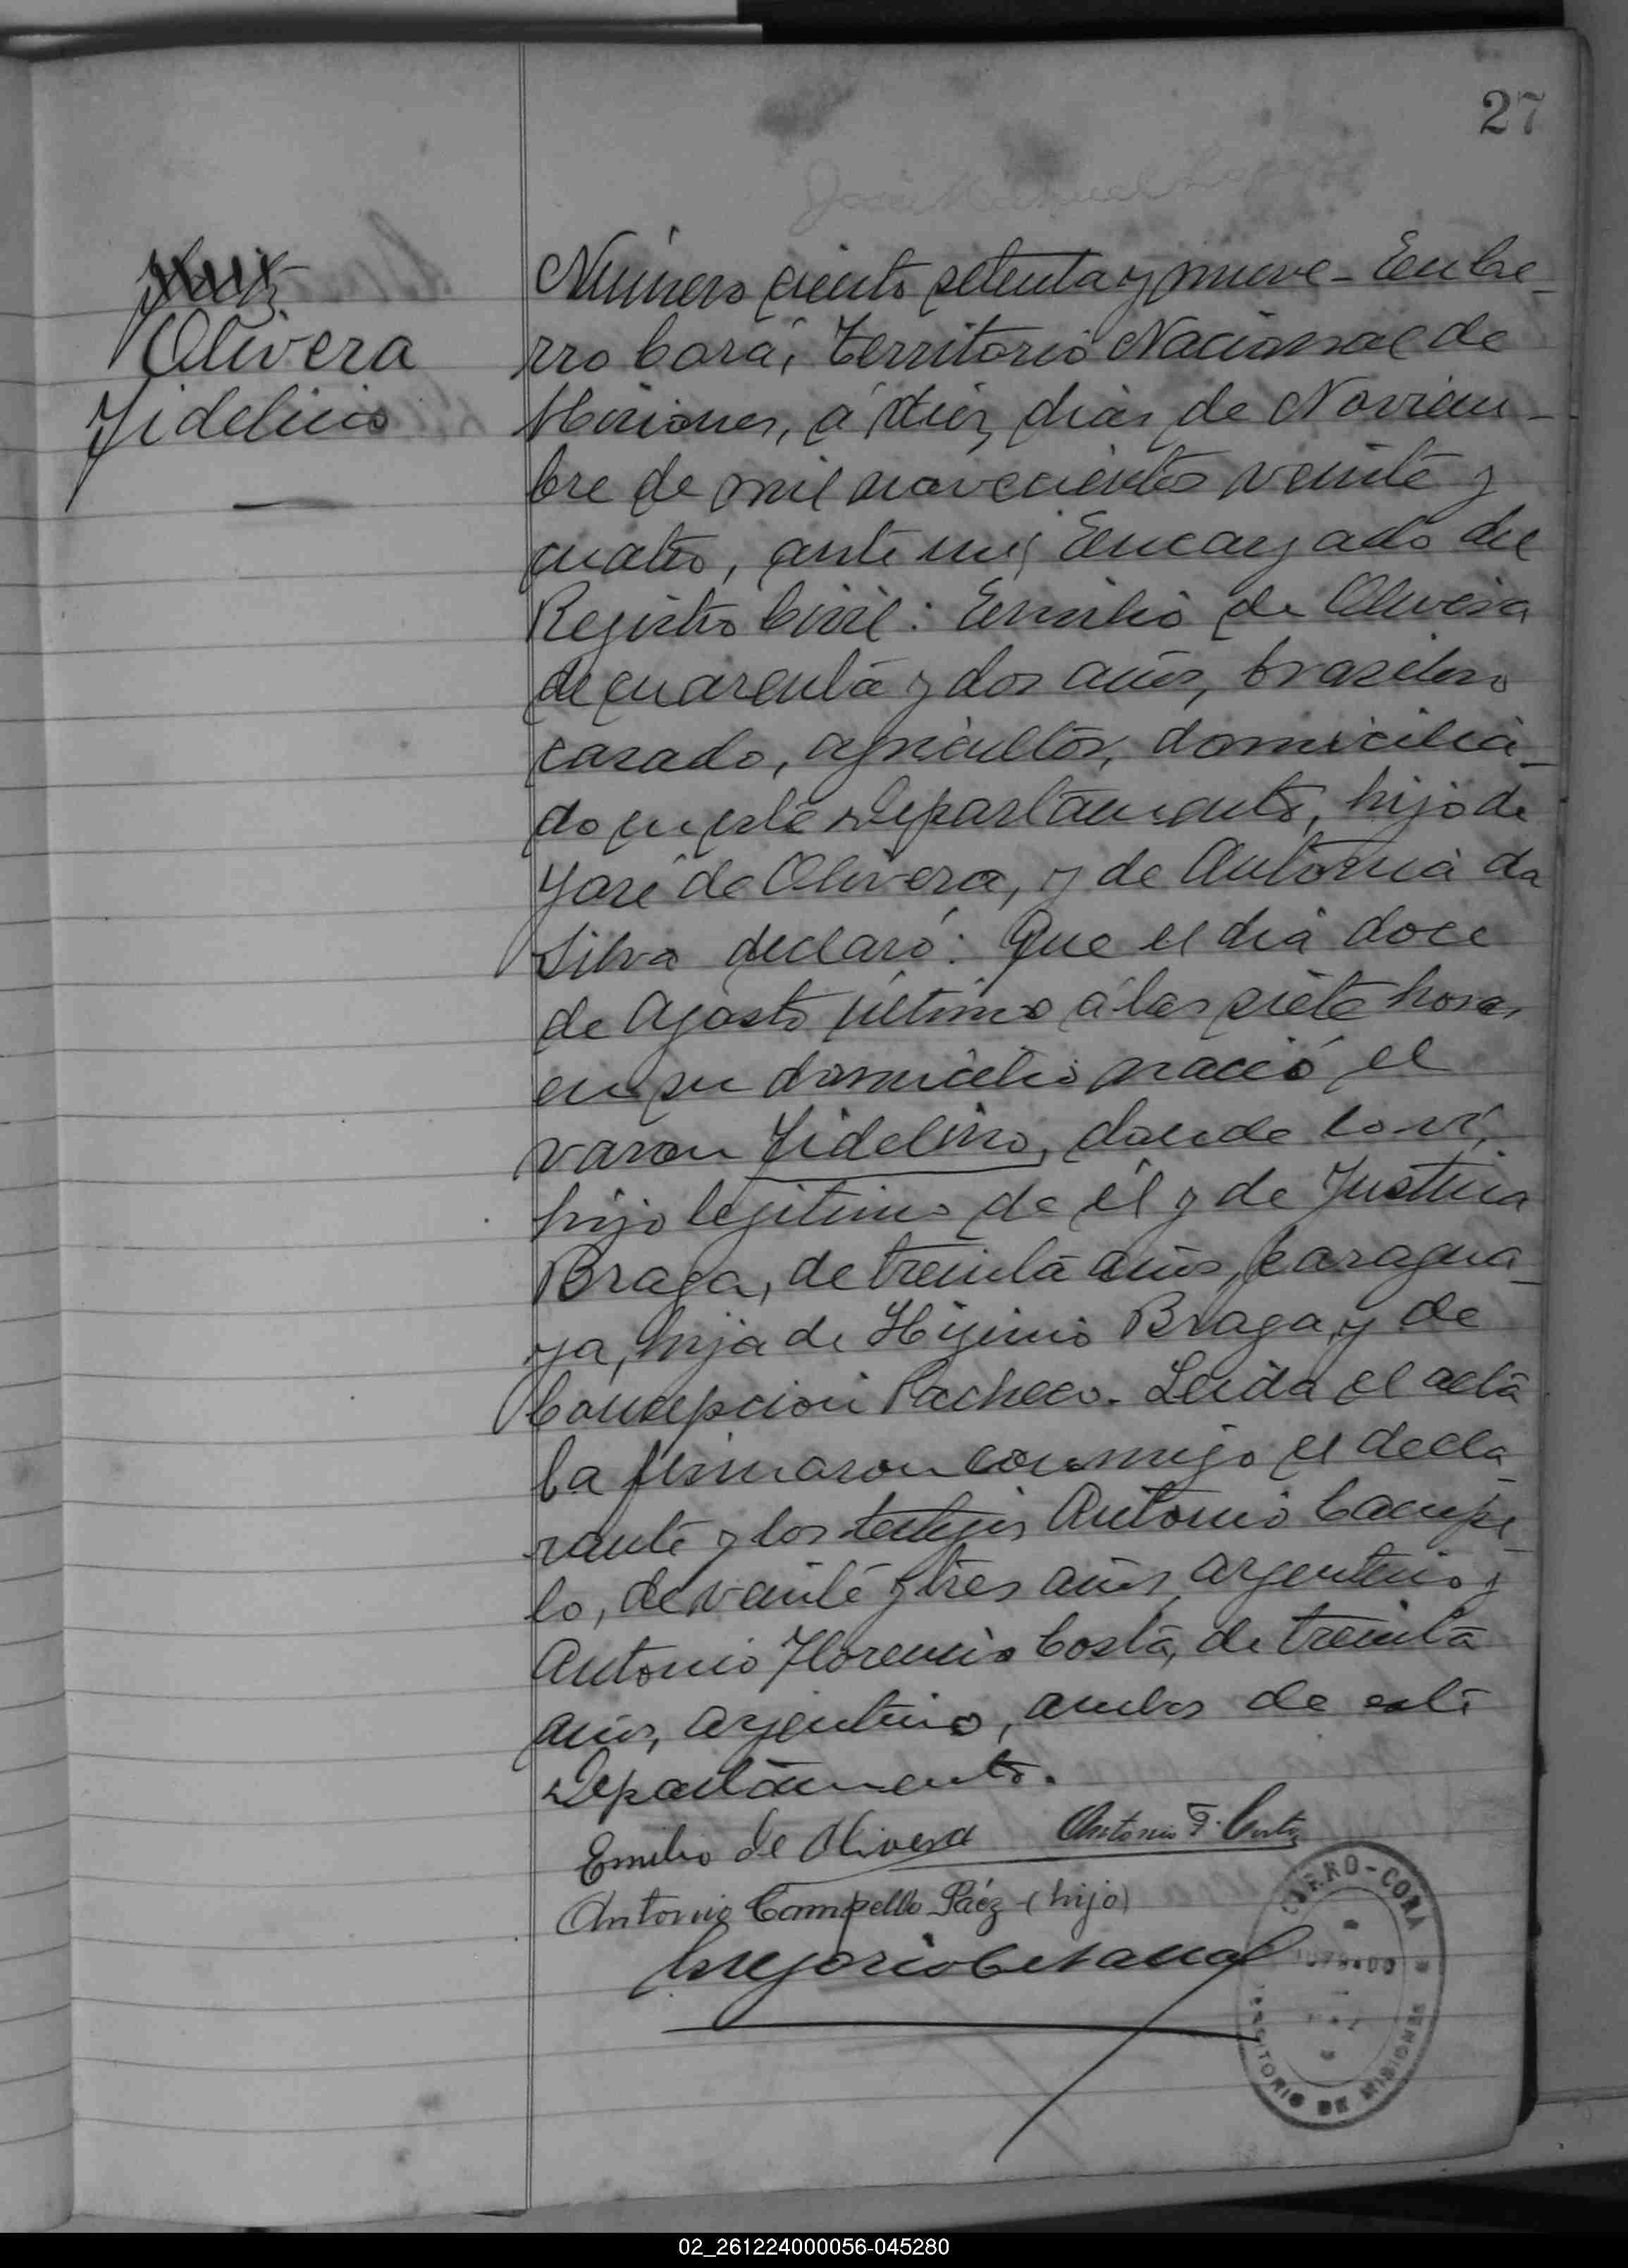 27
Olivera
Fidelino
Número ciento setenta y nueve - En Ce-
rro Corá, Territorio Nacional de
Misiones, á diez dias de Noviem-
bre de mil novecientos veinte y
cuatro, ante mi, Encargado del
Registro Civil: Emilio de Olivera
de cuarenta y dos años, brasilero
casado, agricultor, domicilia-
do en este Departamento, hijo de
José de Olivera, y de Antonia da
Silva declaró: Que el dia doce
de Agosto último á las siete horas
en su domicilio nació el
varon Fidelino, donde lo ví,
hijo legitimo de él y de Justina
Braga, de treinta años, paragua-
ya, hija de Higinio Braga, y de
Concepcion Pacheco. Leida el acta
la firmaron conmigo el decla-
rante y los testigos Antonio Campe-
lo, de veinte y tres años, argentino y
Antonio Florencio Costa, de treinta
años, argentino, ambos de este
Departamento.
Emilio de Olivera Antonio F. Costa
Antonio Campello Páez - (hijo)
Gregorio
CERRO-CORÁ
TERRITORIO DE MISIONES
02_261224000056-045280